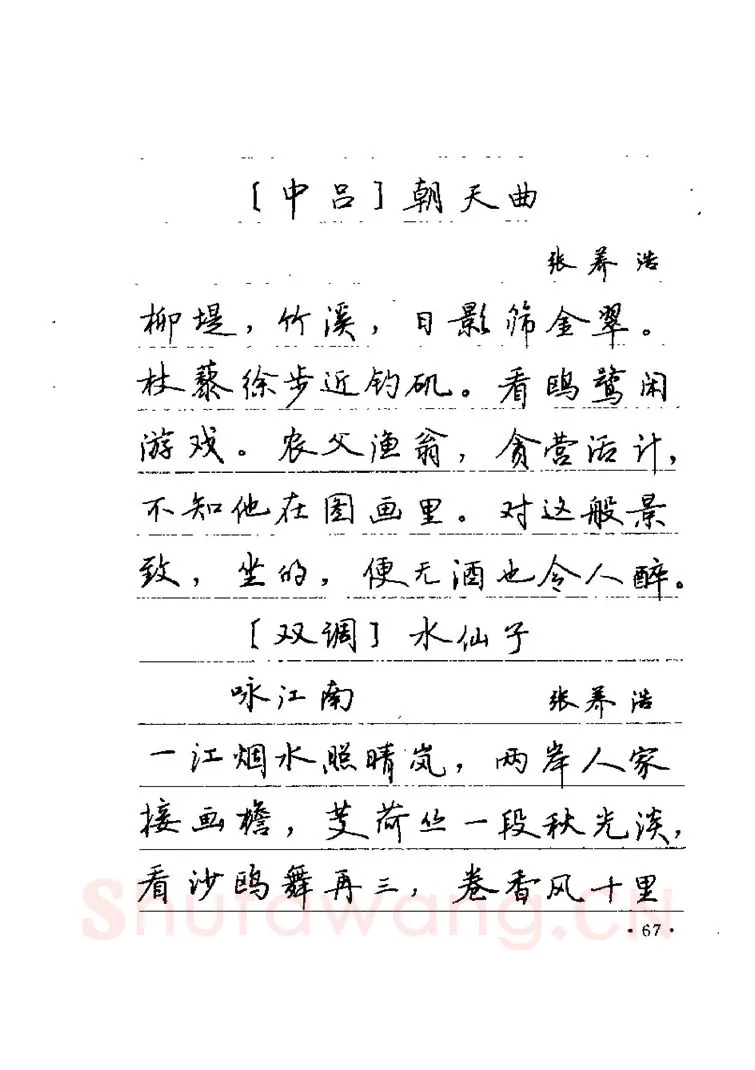 ［中吕］朝天曲
张养浩
柳堤，竹溪，日影筛金翠。
杖藜徐步近钓矶。看鸥鹭闲
游戏。农父渔翁，贪营活计，
不知他在图画里。对这般景
致，坐的，便无酒也令人醉。
［双调］水仙子
咏江南 张养浩
一江烟水照晴岚，两岸人家
接画檐，芰荷丛一段秋光淡，
看沙鸥舞再三，卷香风十里
Shufawang.CN
·67·